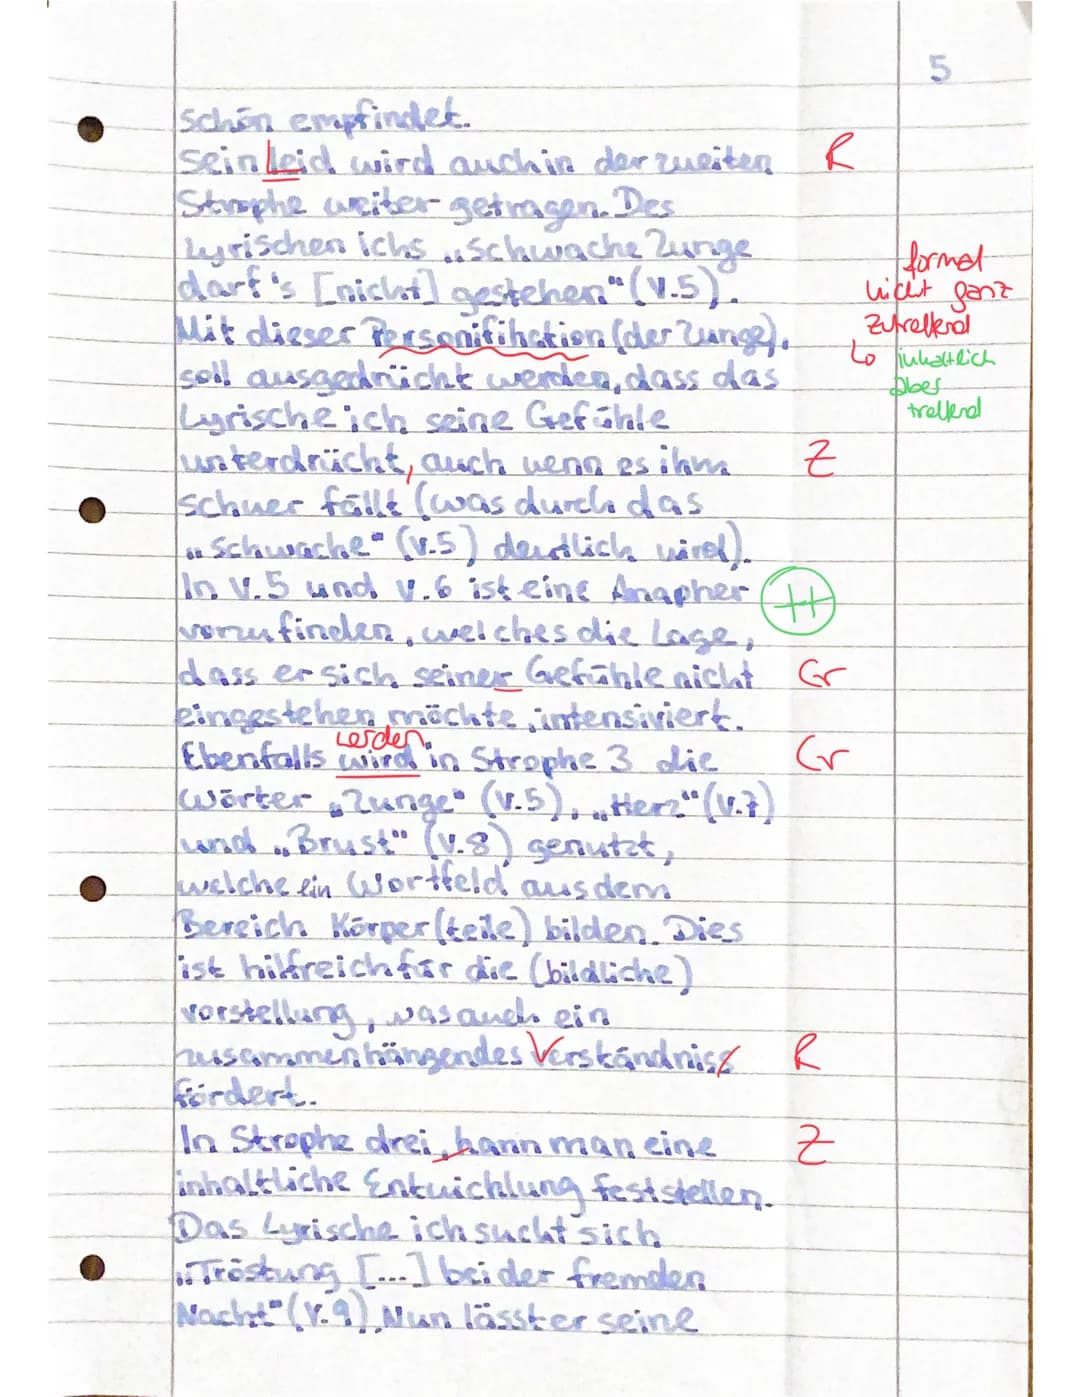 5
schön empfindet.
Sein Leid wird auch in der zweiten R
Strophe weiter getragen. Des
Lyrischen ichs „schwache Zunge
darf's [nicht] gestehen." (V.5).
Mit dieser Personifikation (der Zunge),
soll ausgedrückt werden, dass das
Lyrische ich seine Gefühle
unterdrückt, auch wenn es ihm Z
schwer fällt (was durch das
„schwache" (V.5) deutlich wird).
In V.5 und V.6 ist eine Anapher
vorzufinden, welches die Lage,
dass er sich seiner Gefühle nicht Gr
eingestehen möchte, intensiviert.
werden
Ebenfalls wird in Strophe 3 die Gr
Wörter „Zunge" (V.5), „Herz" (V.7)
und „Brust" (V.8) genutzt,
welche ein Wortfeld aus dem
Bereich Körper(teile) bilden. Dies
ist hilfreich für die (bildliche)
vorstellung, was auch ein
zusammenhängendes Verständniss R
fördert.
In Strophe drei, kann man eine Z
inhaltliche Entwicklung feststellen.
Das Lyrische ich sucht sich
„Tröstung [...] bei der fremden
Nacht" (V.9). Nun lässt er seine
formal
nicht ganz
zutreffend
inhaltlich
aber
treffend